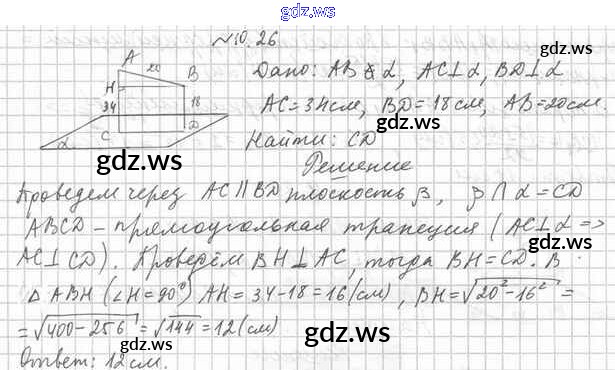 gdz.ws
№10.26
A
20
B
H
34
18
C
D
α
Дано: AB ⊄ α, AC⊥α, BD⊥α
AC=34см, BD=18см, AB=20см.
gdz.ws
Найти: CD
gdz.ws
Решение
Проведем через AC∥BD плоскость β, β∩α=CD
ABCD – прямоугольная трапеция (AC⊥α =>
AC⊥CD). Проведём BH⊥AC, тогда BH=CD. В
gdz.ws
△ABH (∠H=90°) AH=34-18=16(см), BH=√20²-16²=
=√400-256=√144=12(см)
gdz.ws
Ответ: 12см.
gdz.ws